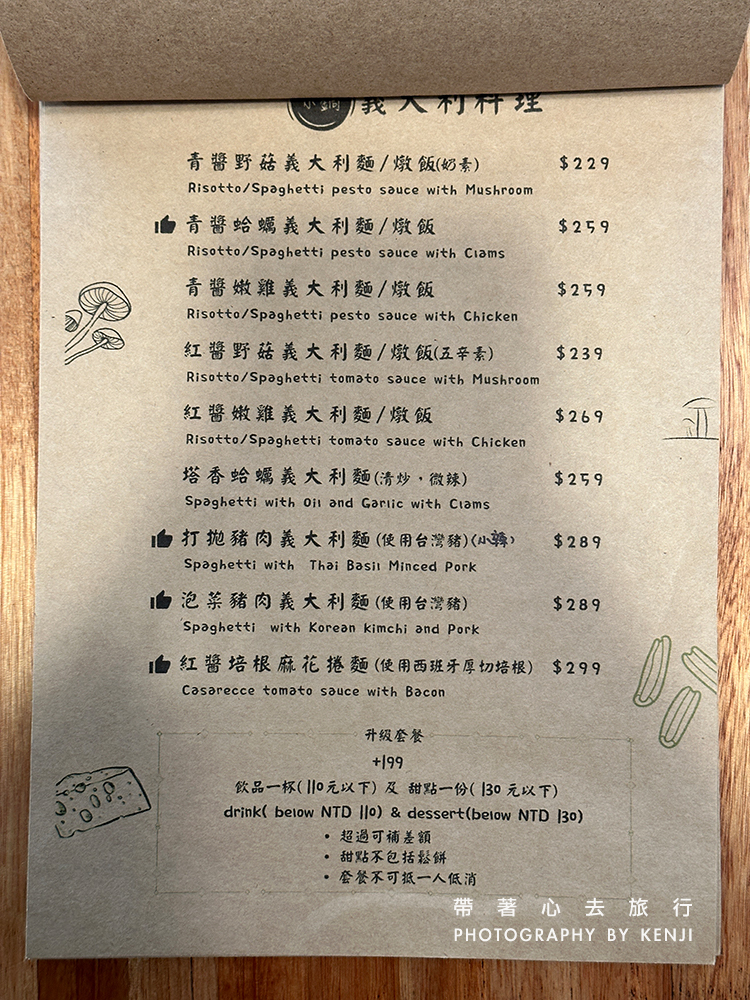 小鍋 義大利料理
青醬野菇義大利麵/燉飯(奶素) $229
Risotto/Spaghetti pesto sauce with Mushroom
青醬蛤蠣義大利麵/燉飯 $259
Risotto/Spaghetti pesto sauce with Clams
青醬嫩雞義大利麵/燉飯 $259
Risotto/Spaghetti pesto sauce with Chicken
紅醬野菇義大利麵/燉飯(五辛素) $239
Risotto/Spaghetti tomato sauce with Mushroom
紅醬嫩雞義大利麵/燉飯 $269
Risotto/Spaghetti tomato sauce with Chicken
塔香蛤蠣義大利麵(清炒,微辣) $259
Spaghetti with Oil and Garlic with Clams
打拋豬肉義大利麵(使用台灣豬)(小辣) $289
Spaghetti with Thai Basil Minced Pork
泡菜豬肉義大利麵(使用台灣豬) $289
Spaghetti with Korean kimchi and Pork
紅醬培根麻花捲麵(使用西班牙厚切培根) $299
Casarecce tomato sauce with Bacon
升級套餐
+199
飲品一杯(110元以下) 及 甜點一份(130元以下)
drink( below NTD 110) & dessert(below NTD 130)
• 超過可補差額
• 甜點不包括鬆餅
• 套餐不可抵一人低消
帶著心去旅行
PHOTOGRAPHY BY KENJI